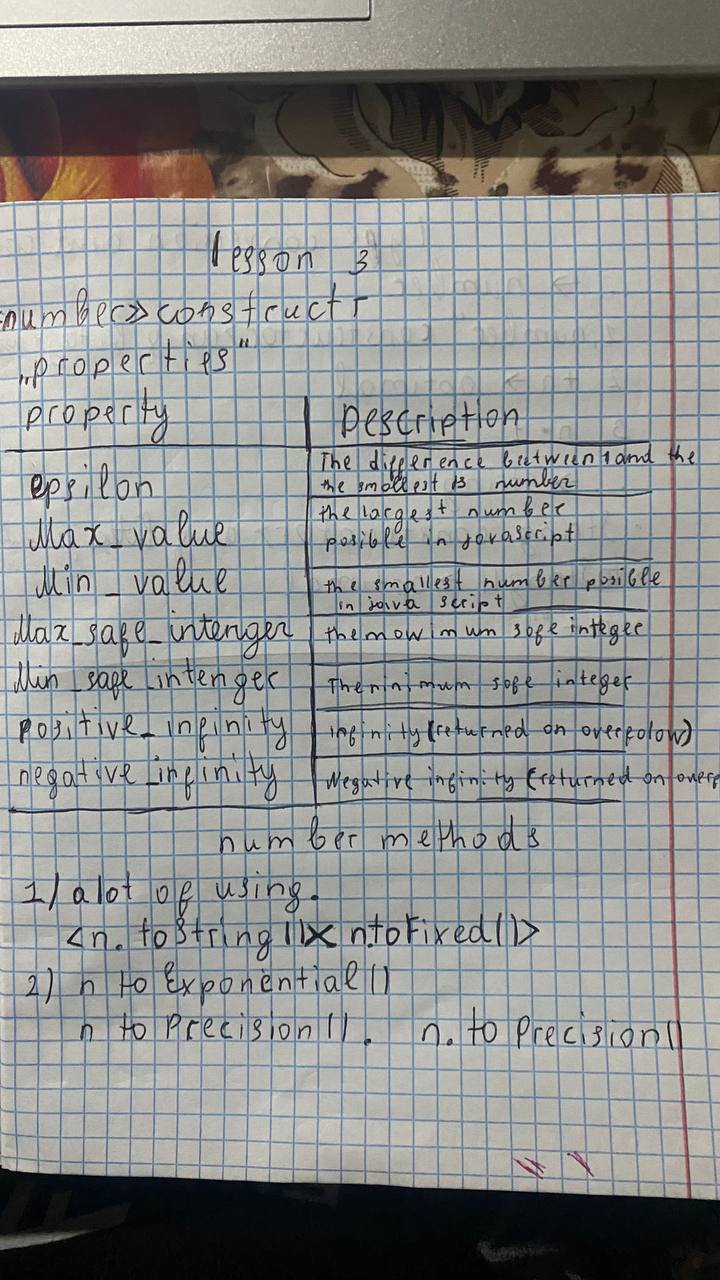 lesson 3
number>> constructr
„properties"
property Description
epsilon The difference between 1 and the
the smallest is number
Max_value the largest number
posible in javascript
Min_value the smallest number posible
in java script
Max_safe_intenger the mowimum safe integer
Min_safe_intenger The ninimum safe integer
positive_infinity infinity (returned on overfolow)
negative_infinity Negative infinity (returned on overf
number methods
1) alot of using.
<n. toString ()>< n.toFixed()>
2) n to Exponential()
n to Precision (). n. to Precision()